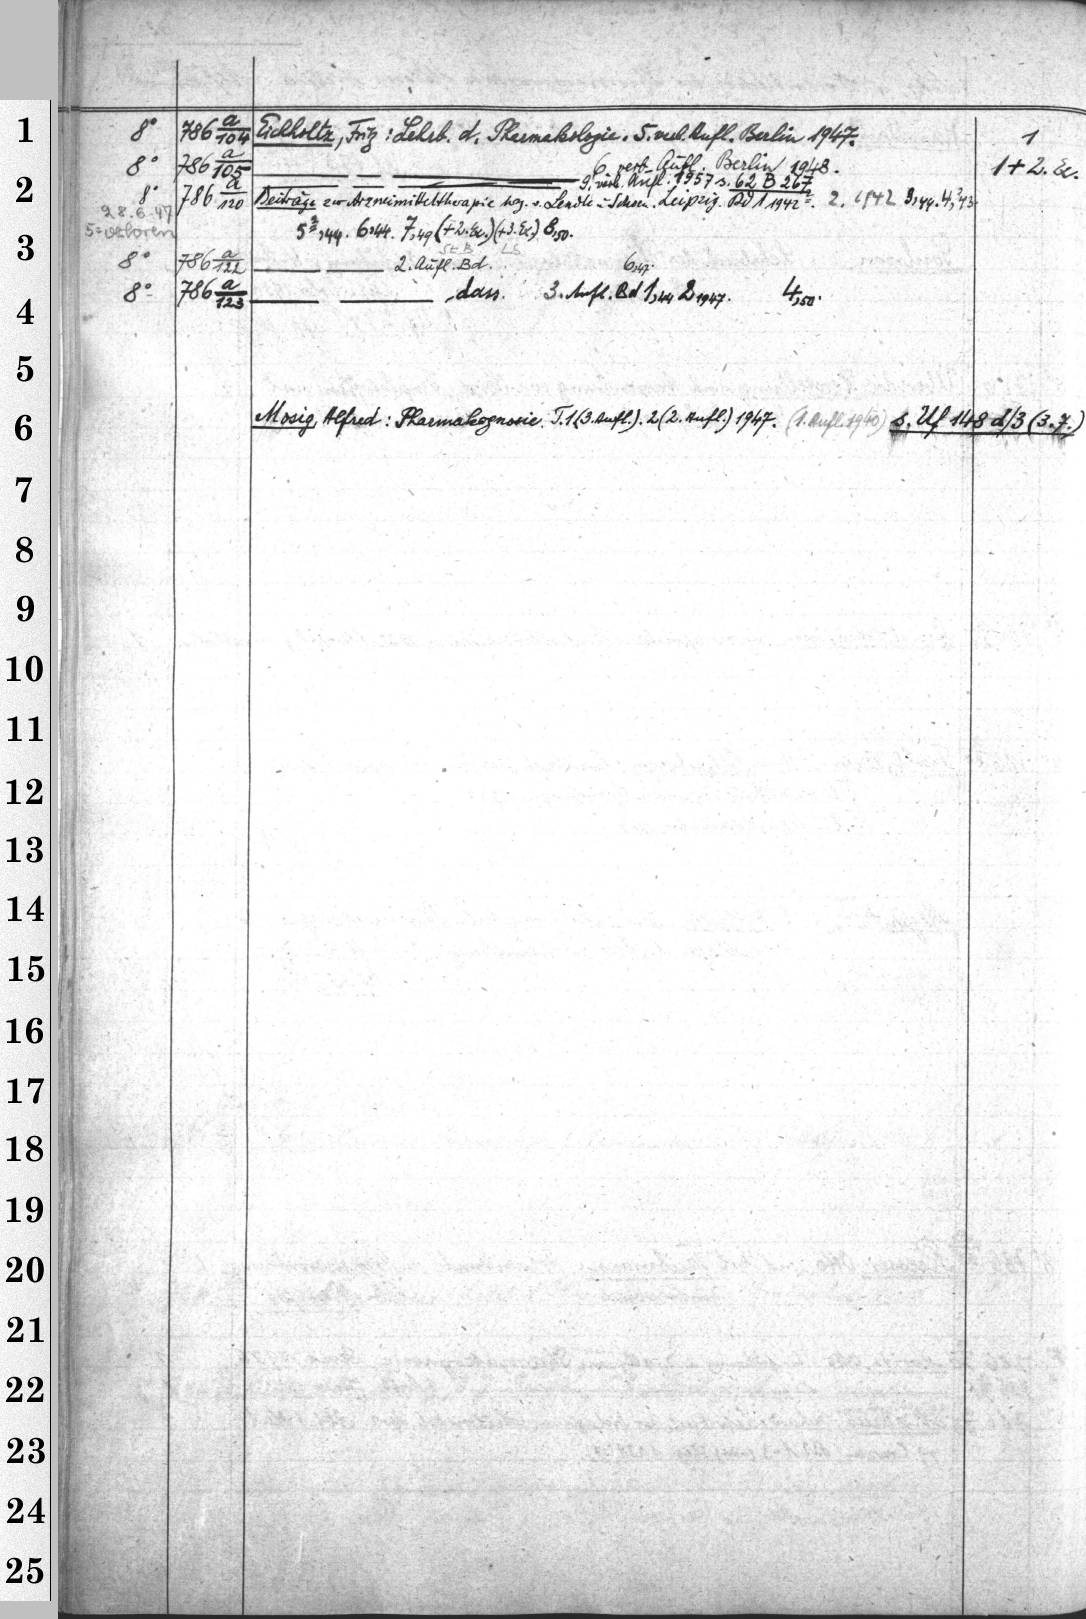 1 8° 786 a/104 Eichholtz, Fritz: Lehrb. d. Pharmakologie. 5. verb. Aufl. Berlin 1947. 1
8° 786 a/105 — — — 6. verb. Aufl. Berlin 1948. 1+2. Ex.
9. verb. Aufl. 1957 s. 62 B 267
2 8° 786 a/120 Beiträge zur Arzneimitteltherapie hsg. v. Lendle u. Schoen. Leipzig. Bd 1 1942. 2. 1942 3,44. 4,²43
28.6.47
5² verloren
5²,44. 6,44. 7,49 (+2.Ex.) (+3.Ex.) 8,50.
St B LS
3 8° 786 a/122 — — 2. Aufl. Bd. 6,47.
8° 786 a/123 — — , dass. 3. Aufl. Bd 1,44 2 1947. 4,50.
4
5
6 Mosig, Alfred: Pharmakognosie. T.1 (3. Aufl.). 2 (2. Aufl.) 1947. (1. Aufl. 1940) s. Uf 148 d/3 (3.7.)
7
8
9
10
11
12
13
14
15
16
17
18
19
20
21
22
23
24
25